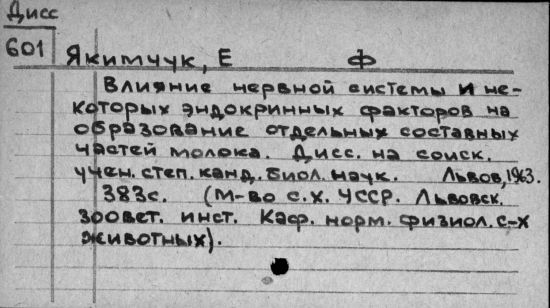 Дисс
601
Якимчук, Е Ф
Влияние нервной системы и не-
которых эндокринных факторов на
образование отдельных составных
частей молока. Дисс. на соиск.
учен. степ. канд. биол. наук. Львов, 1963.
383с. (М-во с.х. УССР. Львовск.
зоовет. инст. Каф. норм. физиол. с-х
животных).